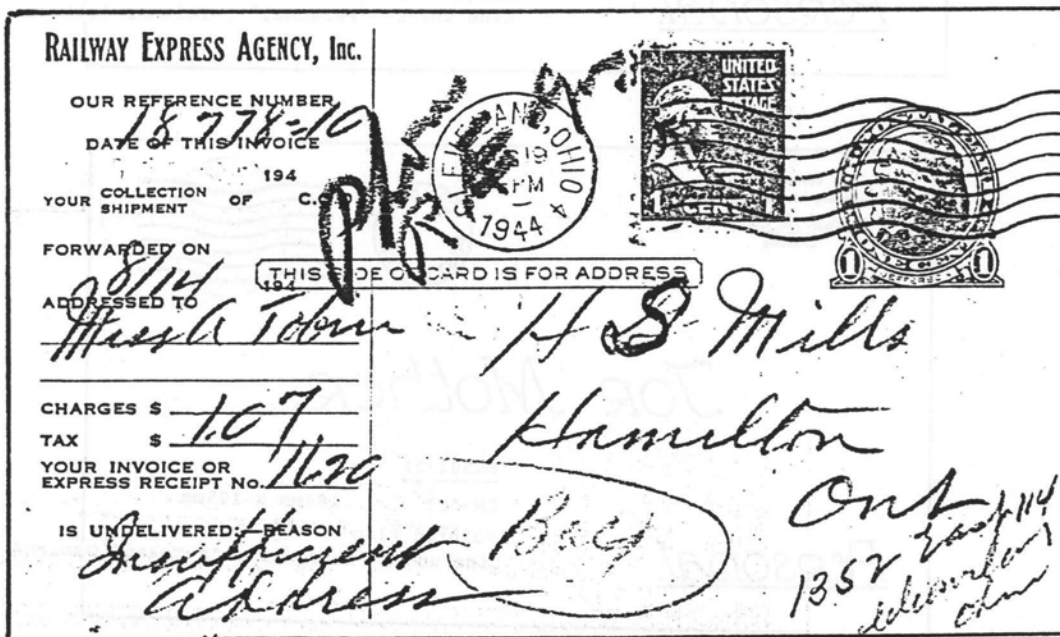 RAILWAY EXPRESS AGENCY, Inc.
OUR REFERENCE NUMBER
18778-10
DATE OF THIS INVOICE
194
YOUR COLLECTION SHIPMENT OF C.O.D
FORWARDED ON
8/14
194
ADDRESSED TO
Miss A Tobin
CHARGES $ 1.07
TAX $
YOUR INVOICE OR
EXPRESS RECEIPT No. 1120
IS UNDELIVERED:—REASON
Insufficient
address
CLEVELAND, OHIO 4
19
PM
1944
UNITED
STATES
POSTAGE
1
1
THIS SIDE OF CARD IS FOR ADDRESS
H S Mills
Hamilton
Ont
1352 East 114
Cleveland
Ohio